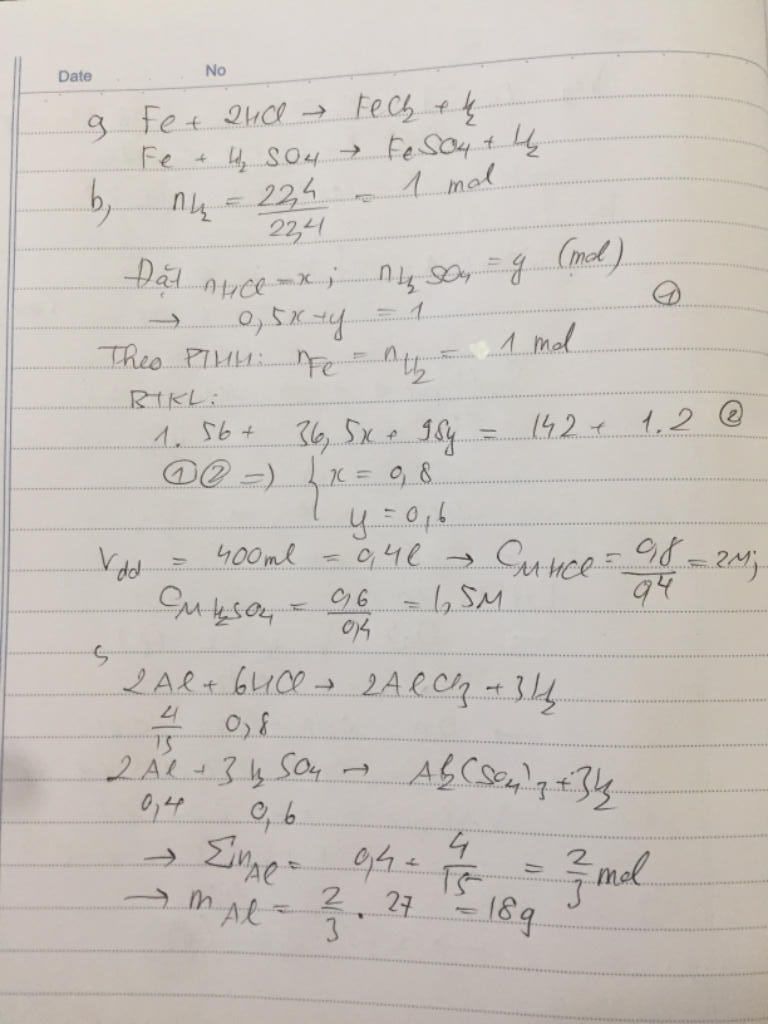 Date No
a, Fe + 2HCl → FeCl2 + H2
Fe + H2SO4 → FeSO4 + H2
b, nH2 = 22,4/22,4 = 1 mol
Đặt nHCl = x; nH2SO4 = y (mol)
→ 0,5x + y = 1 ①
Theo PTHH: nFe = nH2 = 1 mol
BTKL:
1. 56 + 36,5x + 98y = 142 + 1.2 ②
①② => { x = 0,8
y = 0,6
Vdd = 400ml = 0,4l → CM HCl = 0,8/0,4 = 2M;
CM H2SO4 = 0,6/0,4 = 1,5M
c,
2Al + 6HCl → 2AlCl3 + 3H2
4/15 0,8
2Al + 3H2SO4 → Al2(SO4)3 + 3H2
0,4 0,6
→ ΣnAl = 0,4 + 4/15 = 2/3 mol
→ mAl = 2/3 . 27 = 18g